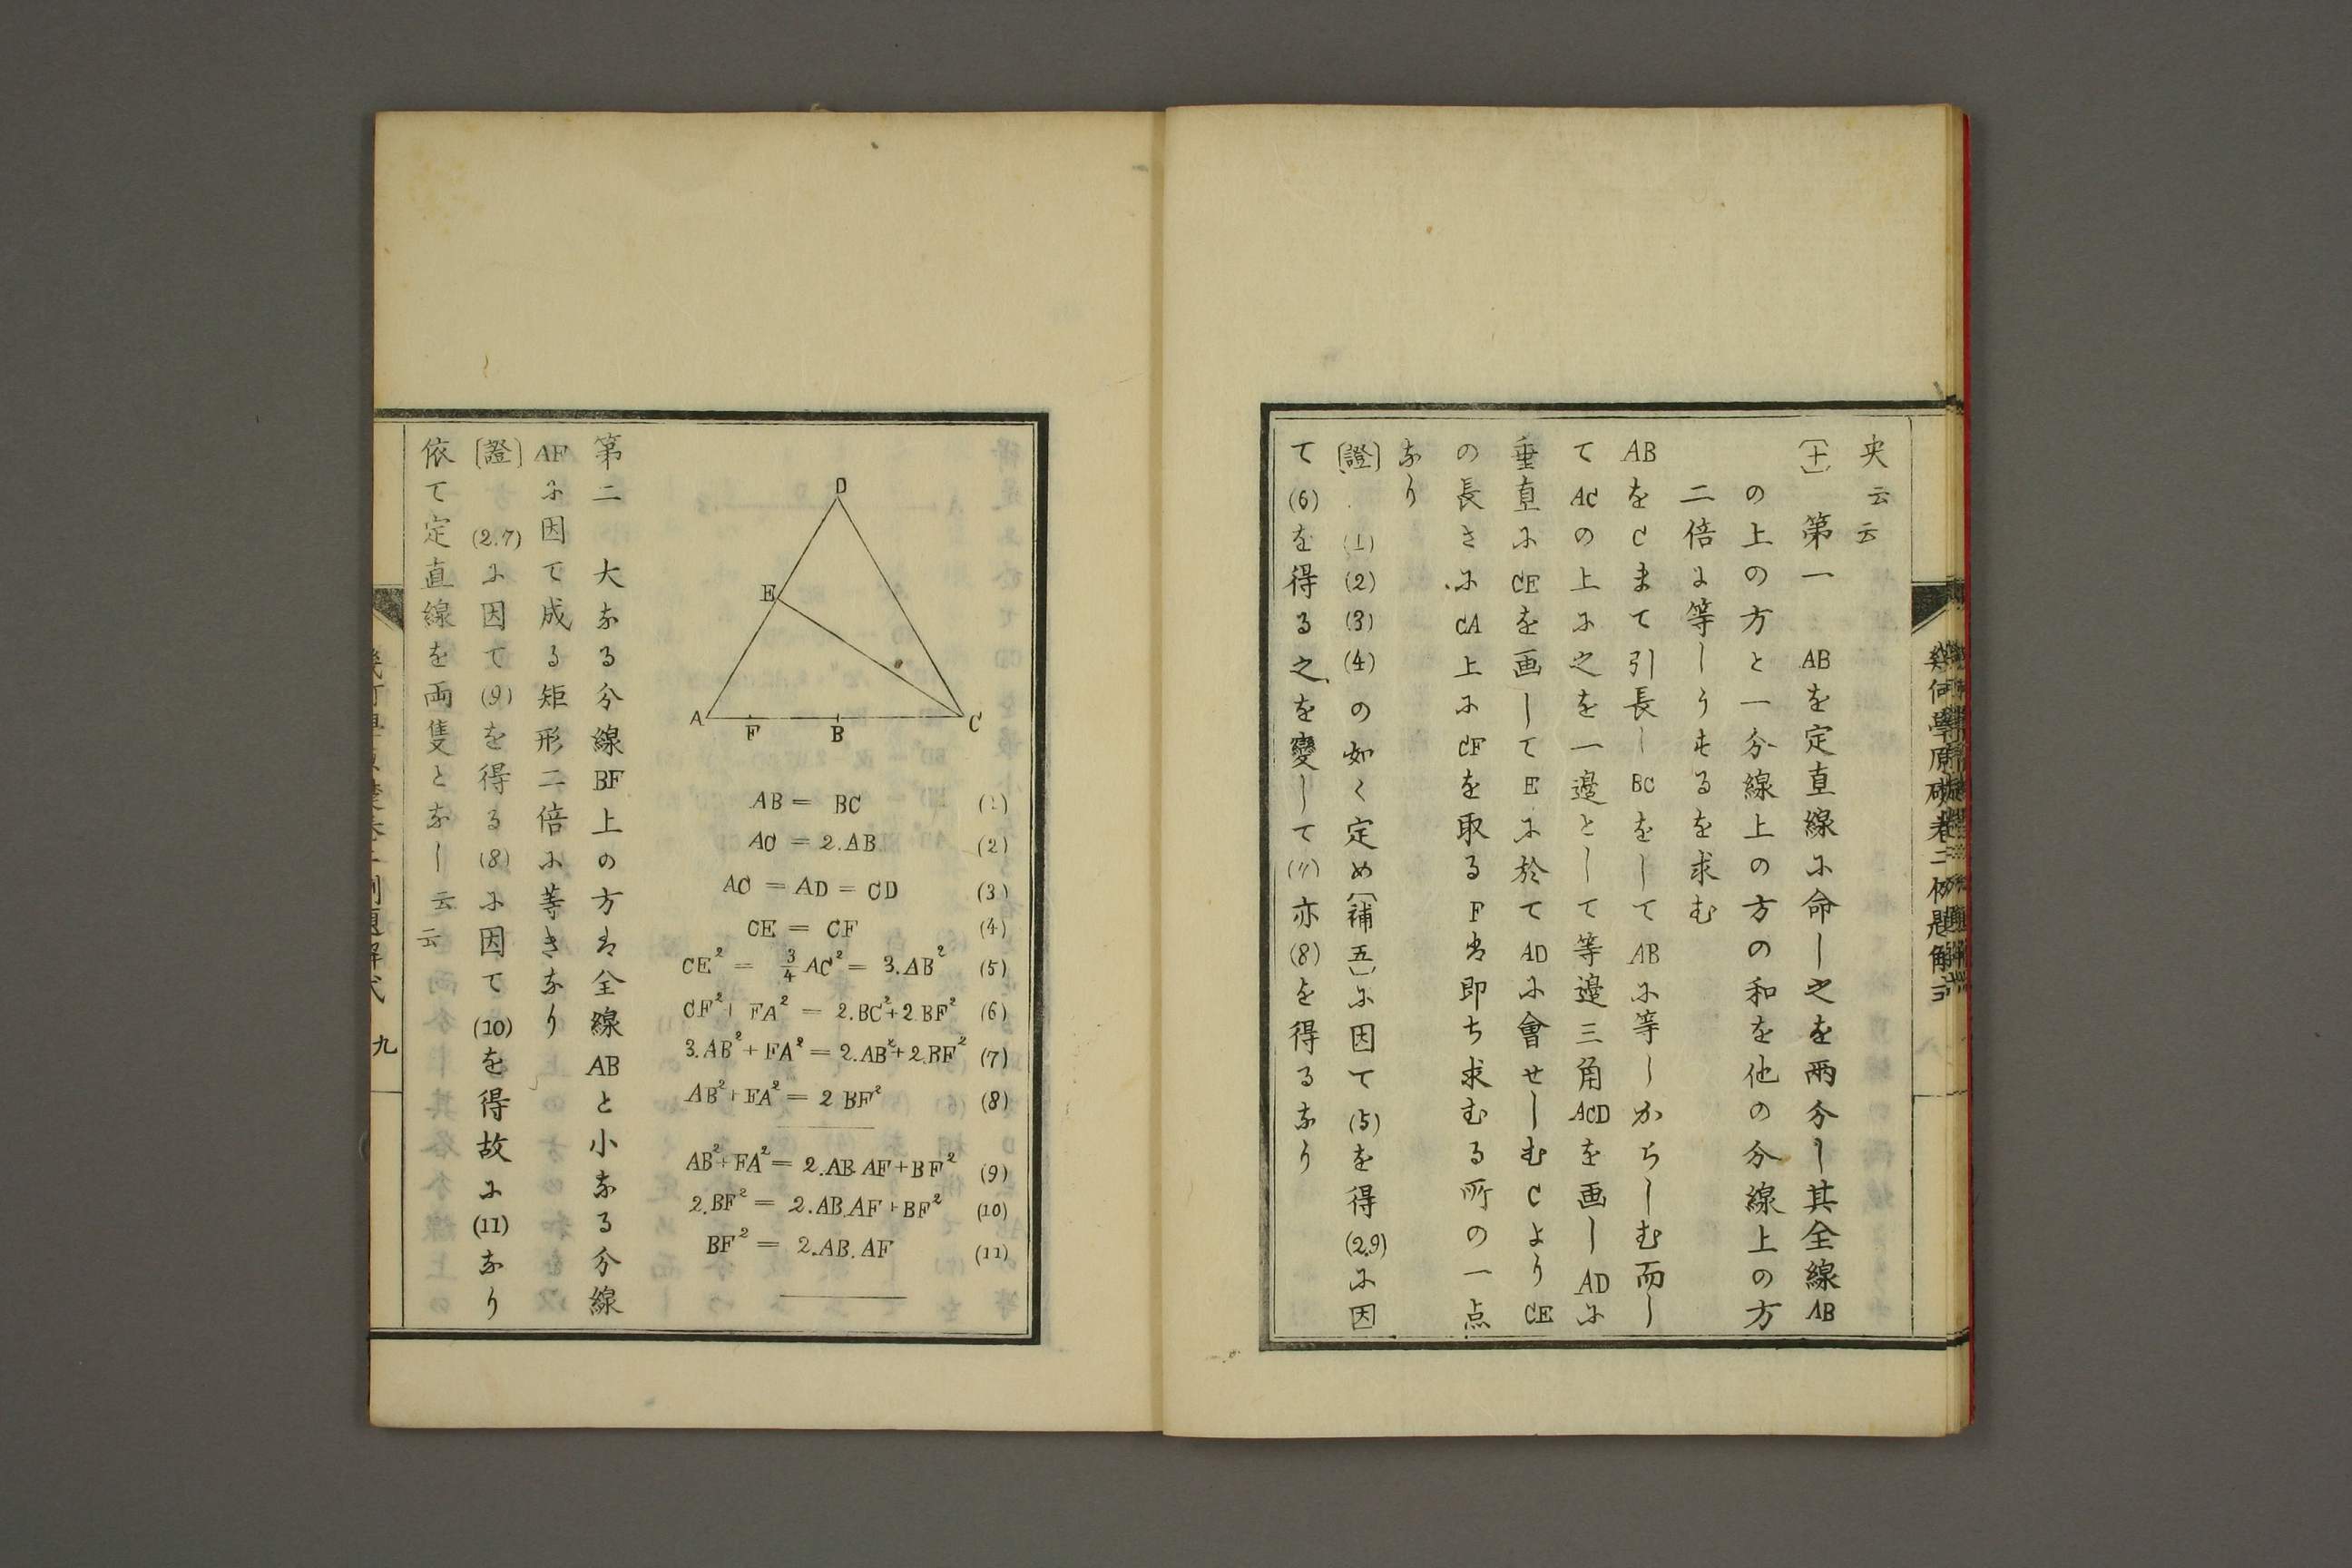 央云云
〔十〕 第一 ABを定直線に命し之を兩分し其全線AB
の上の方と一分線上の方の和を他の分線上の方
二倍に等しうするを求む
ABをCまて引長しBCをしてABに等しからしむ而し
てACの上に之を一邉として等邉三角ACDを画しADに
垂直にCEを画してEに於てADに會せしむCよりCE
の長きにCA上にCFを取るFは即ち求むる所の一点
なり
〔證〕 (1)(2)(3)(4)の如く定め〔補五〕に因て(5)を得(2.9)に因
て(6)を得る之を變して(7)亦(8)を得るなり
D
E
A F B C
AB = BC (1)
AC = 2.AB (2)
AC = AD = CD (3)
CE = CF (4)
CE² = 3/4 AC² = 3.AB² (5)
CF² + FA² = 2.BC² + 2.BF² (6)
3.AB² + FA² = 2.AB² + 2.BF² (7)
AB² + FA² = 2 BF² (8)
AB² + FA² = 2.AB.AF + BF² (9)
2.BF² = 2.AB.AF + BF² (10)
BF² = 2.AB.AF (11)
第二 大なる分線BF上の方は全線ABと小なる分線
AFに因て成る矩形二倍に等きなり
〔證〕 (2.7)に因て(9)を得る(8)に因て(10)を得故に(11)なり
依て定直線を両隻となし云云
九